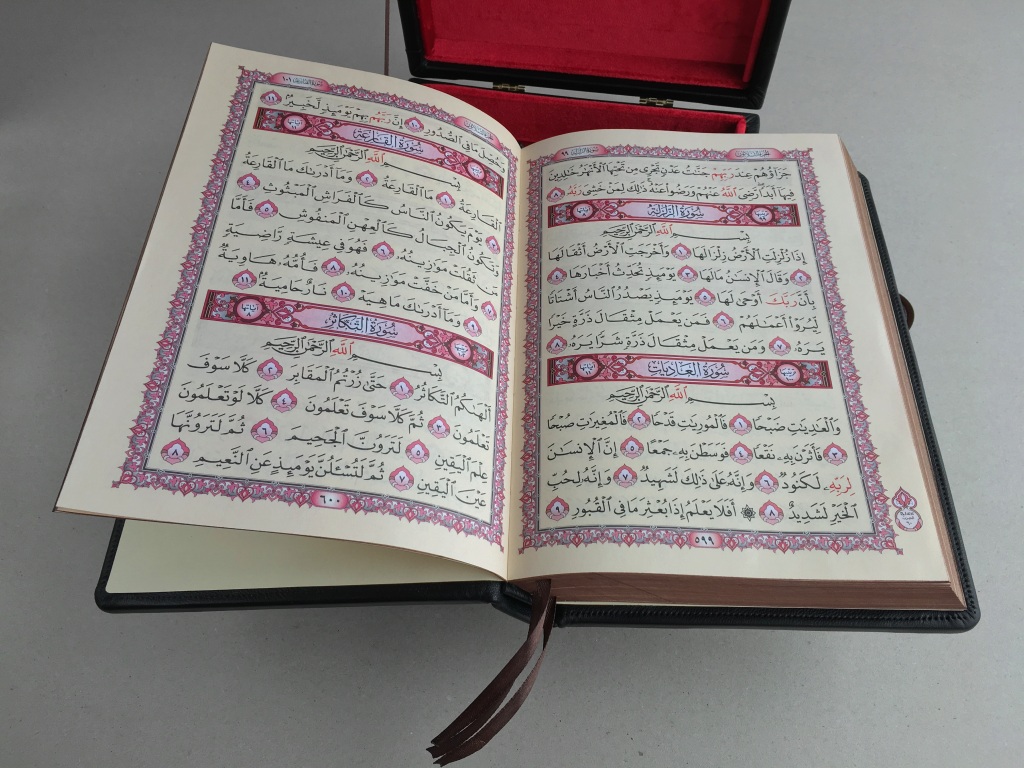 سُورَةُ الزَّلْزَلَةِ ٩٩
جَزَآؤُهُمْ عِندَ رَبِّهِمْ جَنَّٰتُ عَدْنٍ تَجْرِى مِن تَحْتِهَا ٱلْأَنْهَٰرُ خَٰلِدِينَ
فِيهَآ أَبَدًا رَّضِىَ ٱللَّهُ عَنْهُمْ وَرَضُوا۟ عَنْهُ ذَٰلِكَ لِمَنْ خَشِىَ رَبَّهُۥ ٨
سُورَةُ الزَّلْزَلَةِ
بِسْمِ ٱللَّهِ ٱلرَّحْمَٰنِ ٱلرَّحِيمِ
إِذَا زُلْزِلَتِ ٱلْأَرْضُ زِلْزَالَهَا ١ وَأَخْرَجَتِ ٱلْأَرْضُ أَثْقَالَهَا
٢ وَقَالَ ٱلْإِنسَٰنُ مَا لَهَا ٣ يَوْمَئِذٍ تُحَدِّثُ أَخْبَارَهَا ٤
بِأَنَّ رَبَّكَ أَوْحَىٰ لَهَا ٥ يَوْمَئِذٍ يَصْدُرُ ٱلنَّاسُ أَشْتَاتًا
لِّيُرَوْا۟ أَعْمَٰلَهُمْ ٦ فَمَن يَعْمَلْ مِثْقَالَ ذَرَّةٍ خَيْرًا
يَرَهُۥ ٧ وَمَن يَعْمَلْ مِثْقَالَ ذَرَّةٍ شَرًّا يَرَهُۥ ٨
سُورَةُ العَادِيَاتِ
بِسْمِ ٱللَّهِ ٱلرَّحْمَٰنِ ٱلرَّحِيمِ
وَٱلْعَٰدِيَٰتِ ضَبْحًا ١ فَٱلْمُورِيَٰتِ قَدْحًا ٢ فَٱلْمُغِيرَٰتِ صُبْحًا
٣ فَأَثَرْنَ بِهِۦ نَقْعًا ٤ فَوَسَطْنَ بِهِۦ جَمْعًا ٥ إِنَّ ٱلْإِنسَٰنَ
لِرَبِّهِۦ لَكَنُودٌ ٦ وَإِنَّهُۥ عَلَىٰ ذَٰلِكَ لَشَهِيدٌ ٧ وَإِنَّهُۥ لِحُبِّ
ٱلْخَيْرِ لَشَدِيدٌ ٨ ۞ أَفَلَا يَعْلَمُ إِذَا بُعْثِرَ مَا فِى ٱلْقُبُورِ ٩
٥٩٩
سُورَةُ القَارِعَةِ ١٠١
وَحُصِّلَ مَا فِى ٱلصُّدُورِ ١٠ إِنَّ رَبَّهُم بِهِمْ يَوْمَئِذٍ لَّخَبِيرٌۢ ١١
سُورَةُ القَارِعَةِ
بِسْمِ ٱللَّهِ ٱلرَّحْمَٰنِ ٱلرَّحِيمِ
ٱلْقَارِعَةُ ١ مَا ٱلْقَارِعَةُ ٢ وَمَآ أَدْرَىٰكَ مَا ٱلْقَارِعَةُ
٣ يَوْمَ يَكُونُ ٱلنَّاسُ كَٱلْفَرَاشِ ٱلْمَبْثُوثِ ٤
وَتَكُونُ ٱلْجِبَالُ كَٱلْعِهْنِ ٱلْمَنفُوشِ ٥ فَأَمَّا
مَن ثَقُلَتْ مَوَٰزِينُهُۥ ٦ فَهُوَ فِى عِيشَةٍ رَّاضِيَةٍ
٧ وَأَمَّا مَنْ خَفَّتْ مَوَٰزِينُهُۥ ٨ فَأُمُّهُۥ هَاوِيَةٌ
٩ وَمَآ أَدْرَىٰكَ مَا هِيَهْ ١٠ نَارٌ حَامِيَةٌۢ ١١
سُورَةُ التَّكَاثُرِ
بِسْمِ ٱللَّهِ ٱلرَّحْمَٰنِ ٱلرَّحِيمِ
أَلْهَىٰكُمُ ٱلتَّكَاثُرُ ١ حَتَّىٰ زُرْتُمُ ٱلْمَقَابِرَ ٢ كَلَّا سَوْفَ
تَعْلَمُونَ ٣ ثُمَّ كَلَّا سَوْفَ تَعْلَمُونَ ٤ كَلَّا لَوْ تَعْلَمُونَ
عِلْمَ ٱلْيَقِينِ ٥ لَتَرَوُنَّ ٱلْجَحِيمَ ٦ ثُمَّ لَتَرَوُنَّهَا
عَيْنَ ٱلْيَقِينِ ٧ ثُمَّ لَتُسْـَٔلُنَّ يَوْمَئِذٍ عَنِ ٱلنَّعِيمِ ٨
٦٠٠